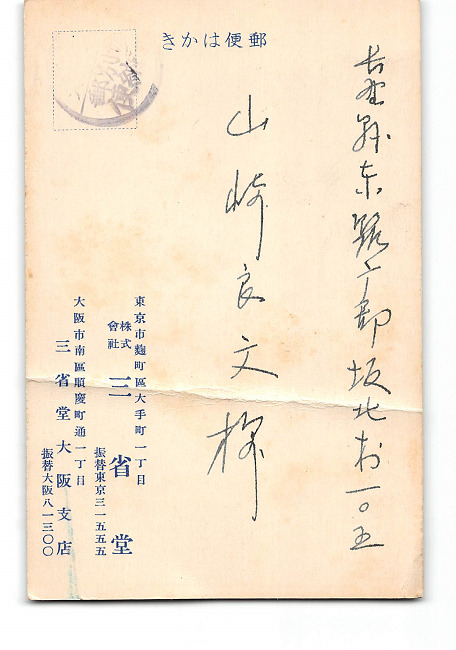 郵便はかき
長野縣東筑摩郡坂北村一〇五
山崎良文様
東京市麹町區大手町一丁目
株式會社 三省堂
振替東京三一五五五
大阪市南區順慶町通一丁目
三省堂大阪支店
振替大阪八一三〇〇